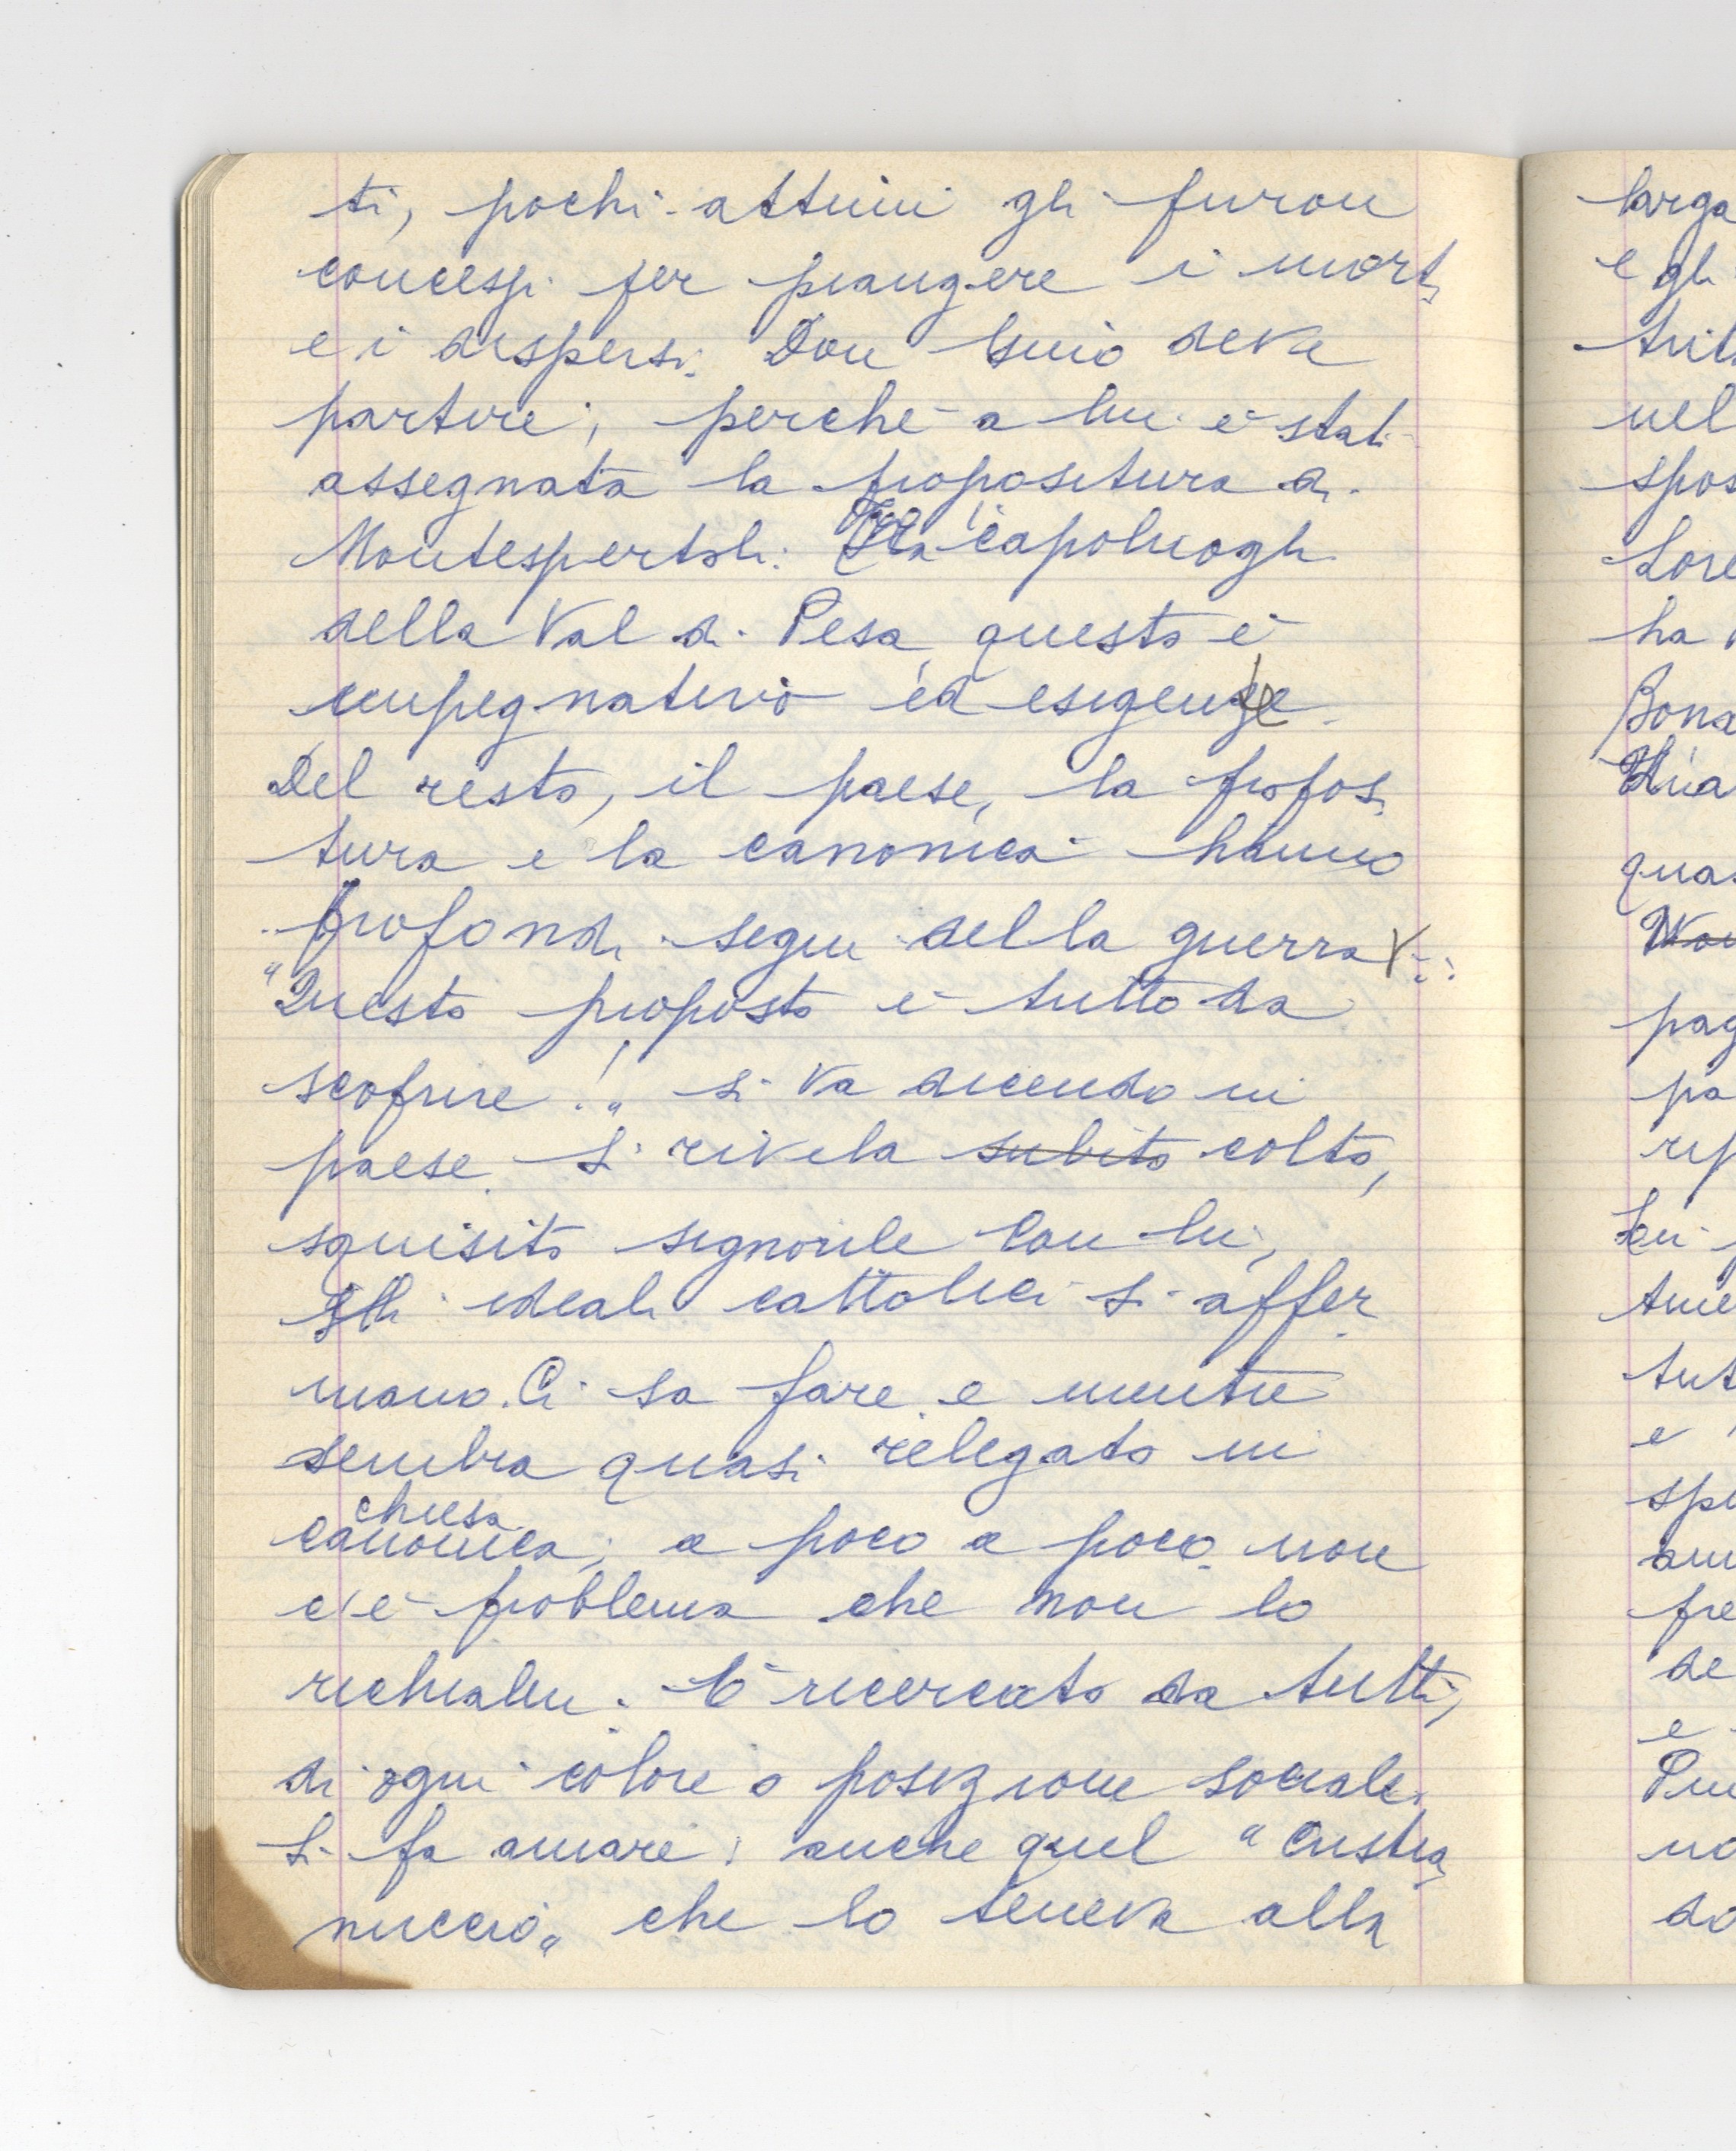 ti, pochi attimi gli furon
concessi per piangere i morti
e i dispersi. Don deve
partire, perchè a lui è stata
assegnata la propositura di
Montespertoli. Fra i capoluoghi
della Val di Pesa, questo è
impegnativo ed esigente.
Del resto, il paese, la proposi
tura e la canonica hanno
profondi segni della guerra
"Questo proposto è tutto da
scoprire!" si va dicendo in
paese. Si rivela subito colto,
squisito signorile Con lui,
gli ideali cattolici si affer
mano. Ci sa fare e mentre
sembra quasi relegato in
chiesa
canonica, a poco a poco non
c'è problema che non lo
richiami. E' ricercato da tutti,
di ogni colore o posizione sociale.
Si fa amare: anche quel "Cristia
nuccio" che lo teneva alla
larga
e gli
nel
spos
Lore
ha
Bona
quas
pag
pa
rip
tut
e
de
e
do